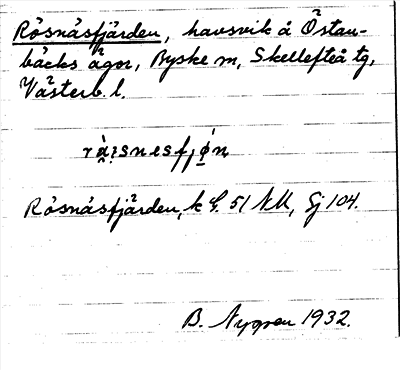 Rösnäsfjärden, havsvik å Östan-
bäcks ägor, Byske sn, Skellefteå tg,
Västerb. l.
Rösnäsfjärden, k G. 51 NU, Gj 104.
B. Nygren 1932.